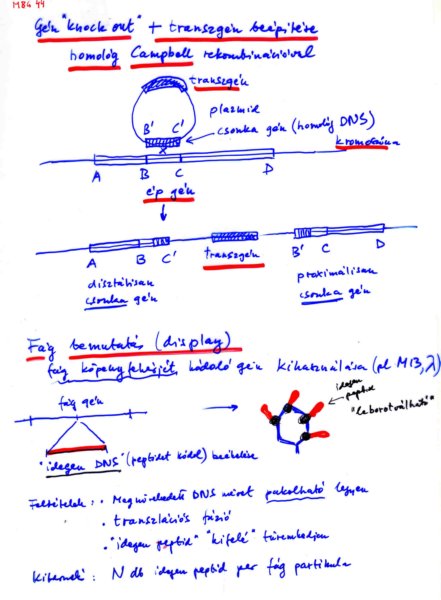 M84 44
Gén "knock out" + transzgén beépítése
homológ Campbell rekombinációval
transzgén
plazmid
B' C' csonka gén (homológ DNS)
x
kromoszóma
A B C D
ép gén
A B C' transzgén B' C D
disztálisan proximálisan
csonka gén csonka gén
Fág bemutatás (display)
fág köpenyfehérjét kódoló gén kihasználása (pl M13, λ)
fág gén
idegen
peptid
"leborotválható"
"idegen DNS" (peptidet kódol) beékelése
Feltételek: • Megnövekedett DNS méret pakolható legyen
• transzlációs fúzió
• "idegen peptid" "kifelé" türemkedjen
Kitermelés: N db idegen peptid per fág partikula